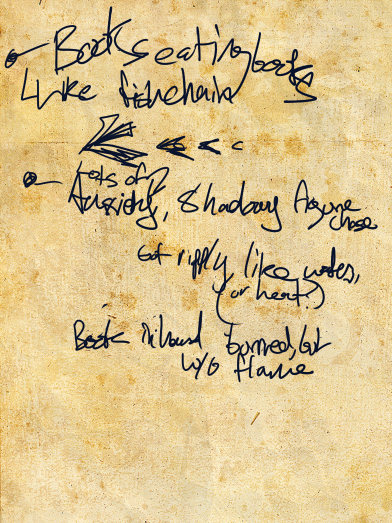 Books eating books
Like fishchain
Lots of?
Anxiety, Shadowy figure
chase
Got ripply like water,
(or heat?)
Book burned, but
w/o flame